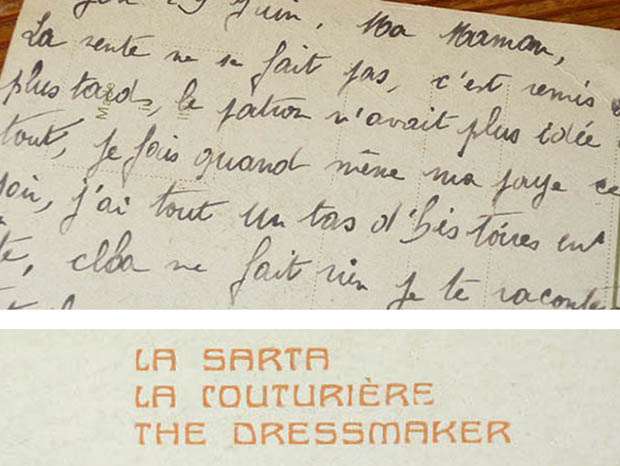 29 juin, Ma Maman,
La vente ne se fait pas, c'est remis
plus tard, le patron n'avait plus idée
tout, je fais quand même ma paye ce
soir, j'ai tout un tas d'histoires en
ne fait rien je te raconte
LA SARTA
LA COUTURIÈRE
THE DRESSMAKER